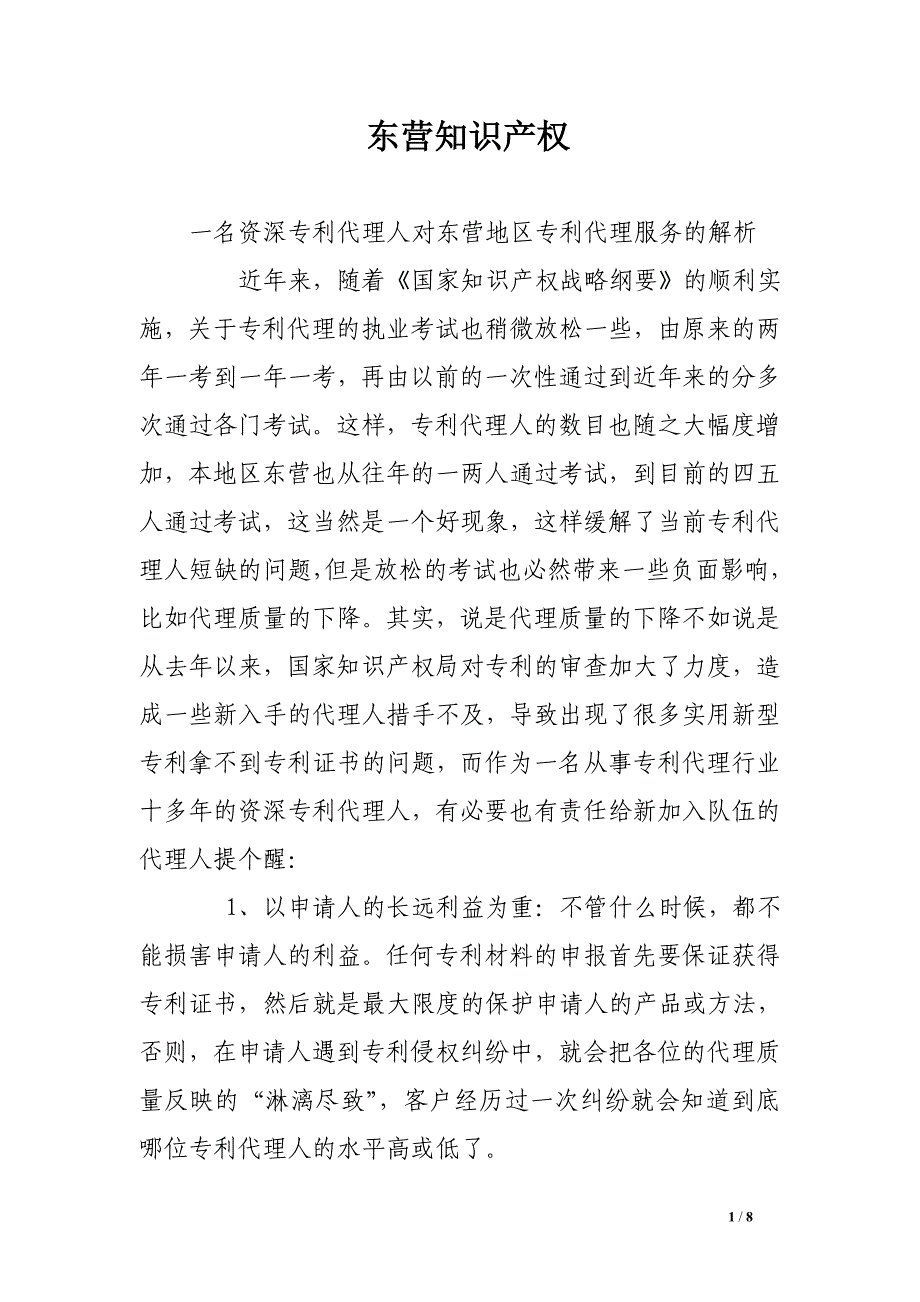 东营知识产权
一名资深专利代理人对东营地区专利代理服务的解析
近年来，随着《国家知识产权战略纲要》的顺利实
施，关于专利代理的执业考试也稍微放松一些，由原来的两
年一考到一年一考，再由以前的一次性通过到近年来的分多
次通过各门考试。这样，专利代理人的数目也随之大幅度增
加，本地区东营也从往年的一两人通过考试，到目前的四五
人通过考试，这当然是一个好现象，这样缓解了当前专利代
理人短缺的问题，但是放松的考试也必然带来一些负面影响，
比如代理质量的下降。其实，说是代理质量的下降不如说是
从去年以来，国家知识产权局对专利的审查加大了力度，造
成一些新入手的代理人措手不及，导致出现了很多实用新型
专利拿不到专利证书的问题，而作为一名从事专利代理行业
十多年的资深专利代理人，有必要也有责任给新加入队伍的
代理人提个醒：
1、以申请人的长远利益为重：不管什么时候，都不
能损害申请人的利益。任何专利材料的申报首先要保证获得
专利证书，然后就是最大限度的保护申请人的产品或方法，
否则，在申请人遇到专利侵权纠纷中，就会把各位的代理质
量反映的“淋漓尽致”，客户经历过一次纠纷就会知道到底
哪位专利代理人的水平高或低了。
1 / 8